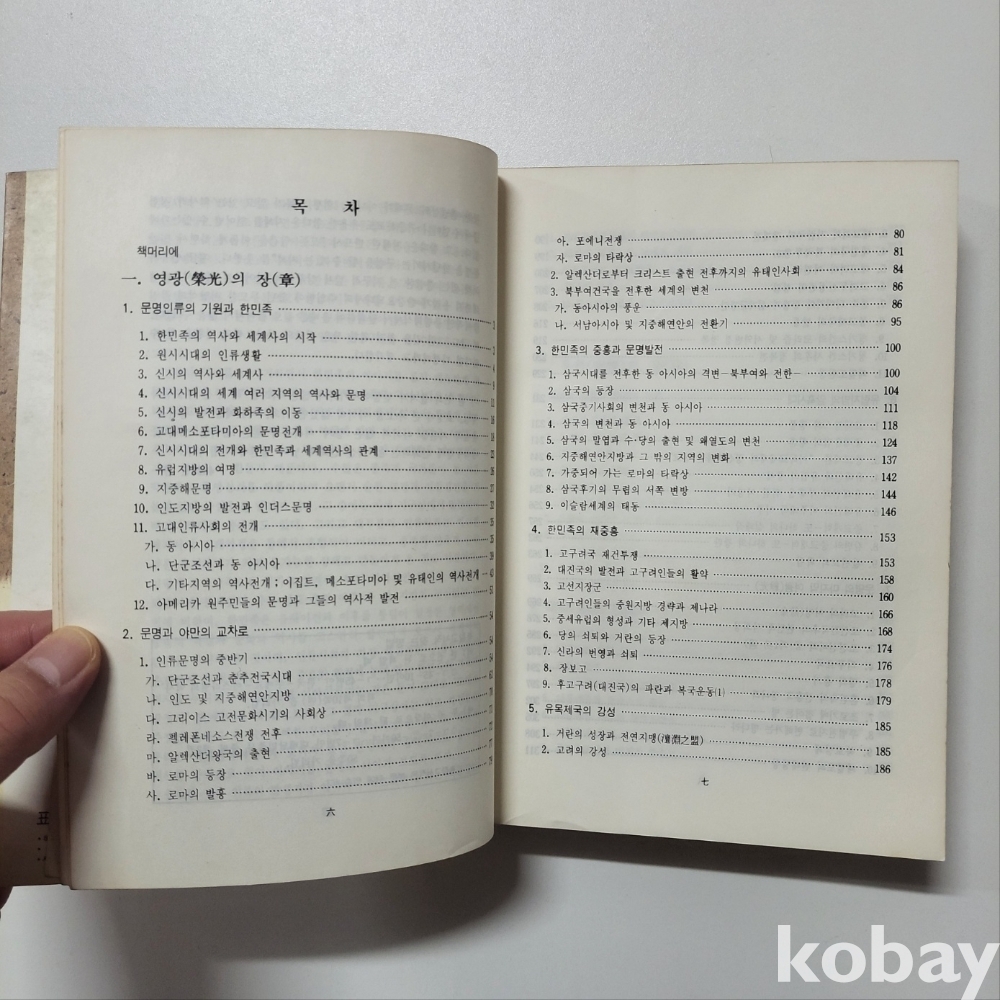 목 차
책머리에
一. 영광(榮光)의 장(章)
1. 문명인류의 기원과 한민족 3
1. 한민족의 역사와 세계사의 시작 3
2. 원시시대의 인류생활
3. 신시의 역사와 세계사
4. 신시시대의 세계 여러 지역의 역사와 문명
5. 신시의 발전과 화하족의 이동
6. 고대메소포타미아의 문명전개
7. 신시시대의 전개와 한민족과 세계역사의 관계
8. 유럽지방의 여명
9. 지중해문명
10. 인도지방의 발전과 인더스문명
11. 고대인류사회의 전개
가. 동 아시아
나. 단군조선과 동 아시아
다. 기타지역의 역사전개 ; 이집트, 메소포타미아 및 유태인의 역사전개
12. 아메리카 원주민들의 문명과 그들의 역사적 발전
2. 문명과 야만의 교차로 54
1. 인류문명의 중반기 54
가. 단군조선과 춘추전국시대
나. 인도 및 지중해연안지방
다. 그리이스 고전문화시기의 사회상
라. 펠레폰네소스전쟁 전후
마. 알렉산더왕국의 출현
바. 로마의 등장
사. 로마의 발흥
六
아. 포에니전쟁 80
자. 로마의 타락상 81
2. 알렉산더로부터 크리스트 출현 전후까지의 유태인사회 84
3. 북부여건국을 전후한 세계의 변천 86
가. 동아시아의 풍운 86
나. 서남아시아 및 지중해연안의 전환기 95
3. 한민족의 중흥과 문명발전 100
1. 삼국시대를 전후한 동 아시아의 격변–북부여와 전한– 100
2. 삼국의 등장 104
3. 삼국중기사회의 변천과 동 아시아 111
4. 삼국의 변천과 동 아시아 118
5. 삼국의 말엽과 수·당의 출현 및 왜열도의 변천 124
6. 지중해연안지방과 그 밖의 지역의 변화 137
7. 가중되어 가는 로마의 타락상 142
8. 삼국후기의 무렵의 서쪽 변방 144
9. 이슬람세계의 태동 146
4. 한민족의 재중흥 153
1. 고구려국 재건투쟁 153
2. 대진국의 발전과 고구려인들의 활약 158
3. 고선지장군 160
4. 고구려인들의 중원지방 경략과 제나라 166
5. 중세유럽의 형성과 기타 제지방 168
6. 당의 쇠퇴와 거란의 등장 174
7. 신라의 번영과 쇠퇴 176
8. 장보고 178
9. 후고구려(대진국)의 파란과 복국운동(1) 179
5. 유목제국의 강성 185
1. 거란의 성장과 전연지맹(澶淵之盟) 185
2. 고려의 강성 186
七
kobay